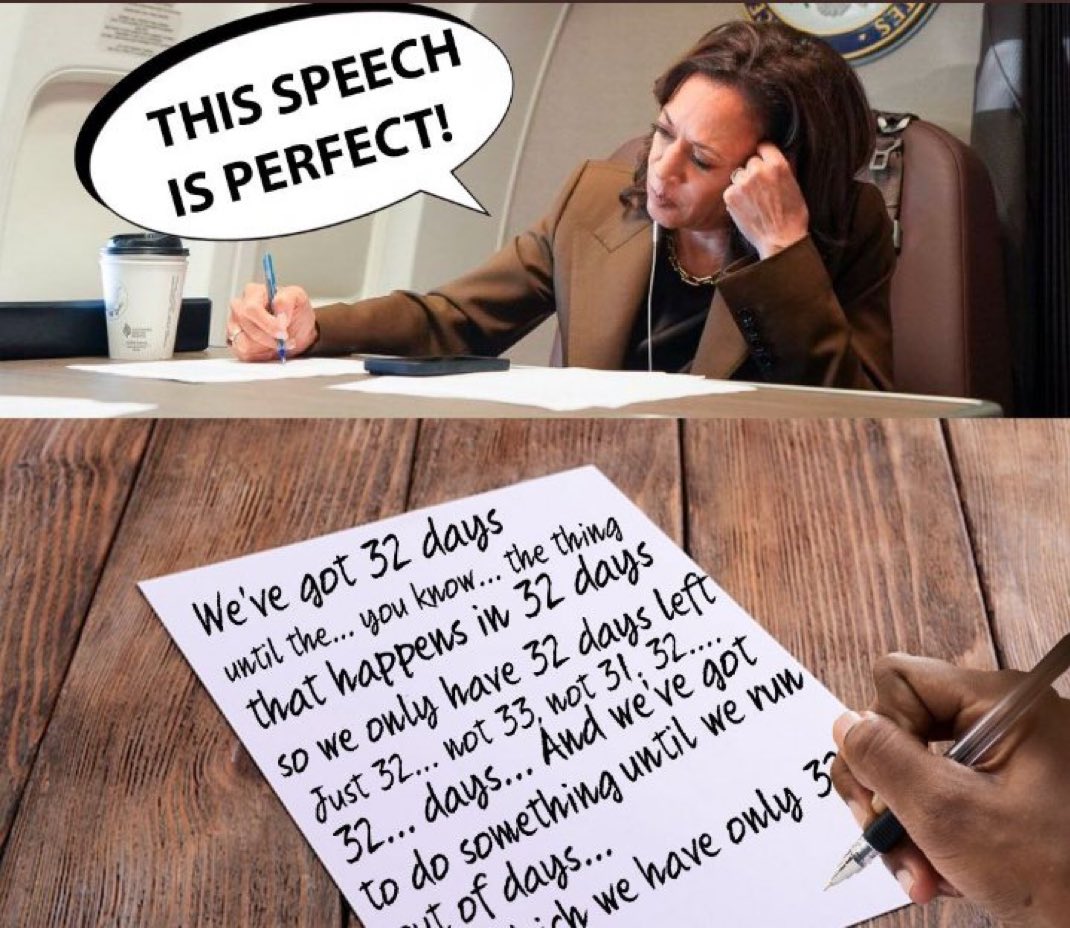 THIS SPEECH
IS PERFECT!
We've got 32 days
until the... you know... the thing
that happens in 32 days
so we only have 32 days left
Just 32... not 33, not 31, 32....
32... days... And we've got
to do something until we run
out of days...
which we have only 32